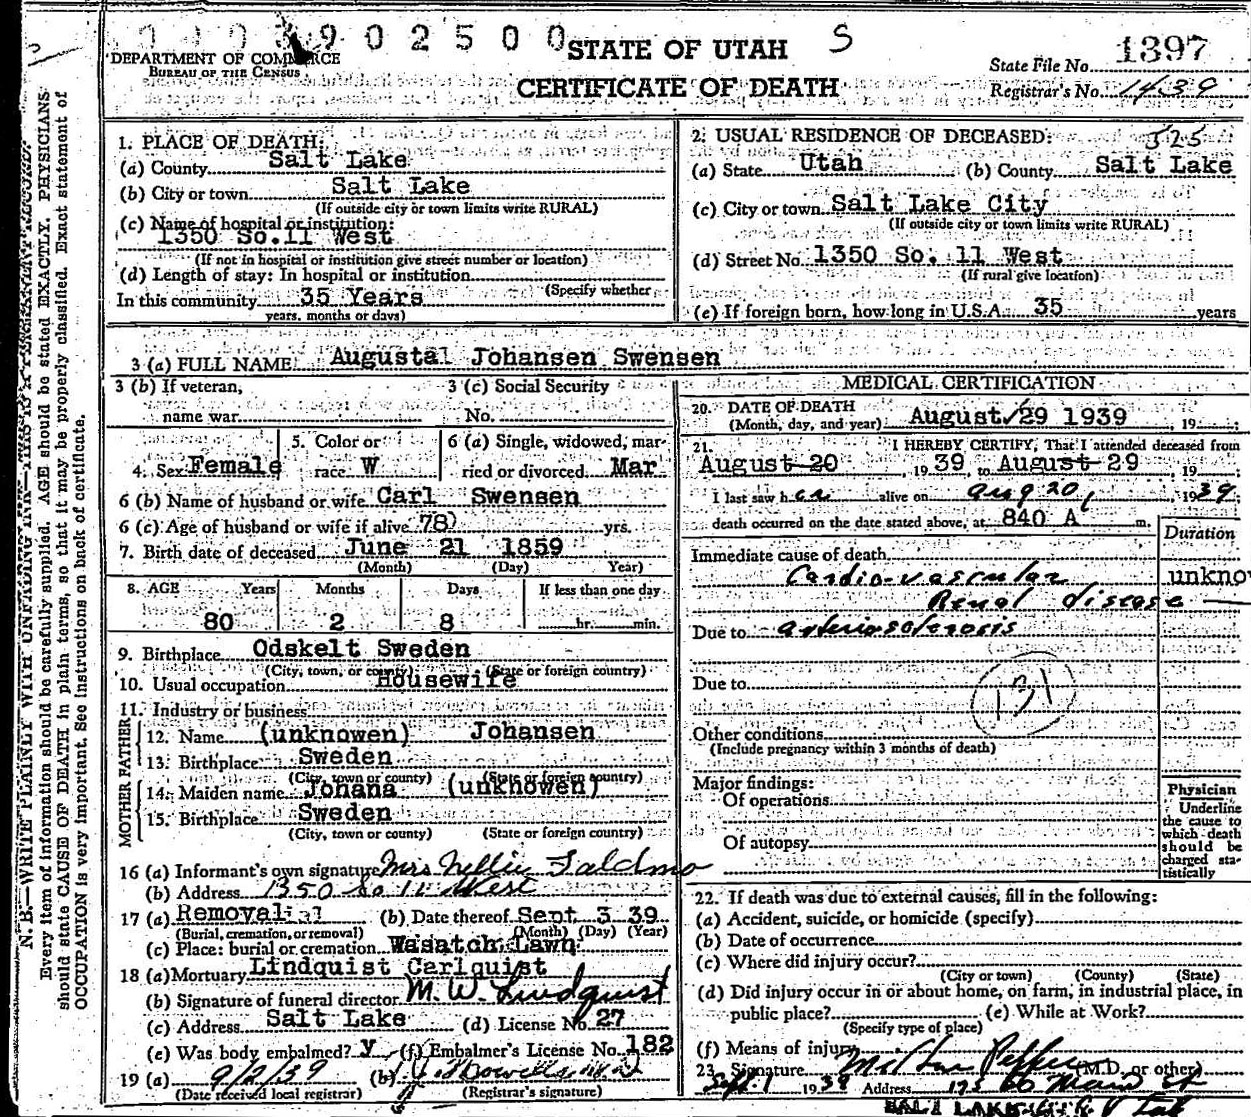 0003902500
STATE OF UTAH
S
DEPARTMENT OF COMMERCE
BUREAU OF THE CENSUS
CERTIFICATE OF DEATH
State File No. 1397
Registrar's No. 1439
N. B.—WRITE PLAINLY WITH UNFADING INK—THIS IS A PERMANENT RECORD.
Every item of information should be carefully supplied. AGE should be stated EXACTLY. PHYSICIANS
should state CAUSE OF DEATH in plain terms, so that it may be properly classified. Exact statement of
OCCUPATION is very important. See instructions on back of certificate.
1. PLACE OF DEATH:
(a) County Salt Lake
(b) City or town Salt Lake
(If outside city or town limits write RURAL)
(c) Name of hospital or institution:
1350 So.11 West
(If not in hospital or institution give street number or location)
(d) Length of stay: In hospital or institution
(Specify whether
In this community 35 Years
years, months or days)
2. USUAL RESIDENCE OF DECEASED: 525
(a) State Utah (b) County Salt Lake
(c) City or town Salt Lake City
(If outside city or town limits write RURAL)
(d) Street No. 1350 So. 11 West
(If rural give location)
(e) If foreign born, how long in U.S.A. 35 years
3 (a) FULL NAME Augustal Johansen Swensen
3 (b) If veteran,
name war
3 (c) Social Security
No.
4. Sex Female
5. Color or
race W
6 (a) Single, widowed, mar-
ried or divorced Mar
6 (b) Name of husband or wife Carl Swensen
6 (c) Age of husband or wife if alive 78 yrs.
7. Birth date of deceased June 21 1859
(Month) (Day) Year)
8. AGE Years Months Days If less than one day
80 2 8 hr. min.
9. Birthplace Odskelt Sweden
(City, town, or county) (State or foreign country)
10. Usual occupation Housewife
11. Industry or business
FATHER
12. Name (unknowen) Johansen
13. Birthplace Sweden
(City, town or county) (State or foreign country)
MOTHER
14. Maiden name Johana (unknowen)
15. Birthplace Sweden
(City, town or county) (State or foreign country)
16 (a) Informant's own signature Mrs Nellie
(b) Address 1350 So 11 West
17 (a) Removal (b) Date thereof Sept 3 39
(Burial, cremation, or removal) (Month) (Day) (Year)
(c) Place: burial or cremation Wasatch Lawn
18 (a) Mortuary Lindquist Carlquist
(b) Signature of funeral director M. W. Lindquist
(c) Address Salt Lake (d) License No. 27
(e) Was body embalmed? y (f) Embalmer's License No. 182
19 (a) 9/2/39 (b)
(Date received local registrar) (Registrar's signature)
MEDICAL CERTIFICATION
20. DATE OF DEATH
(Month, day, and year) August 29 1939, 19
21. I HEREBY CERTIFY, That I attended deceased from
August 20, 1939 to August 29, 19
I last saw her alive on Aug 20, 1939
death occurred on the date stated above, at 840 A m.
Duration
Immediate cause of death
Cardio-vascular
unknow
Renal disease
Due to arteriosclerosis
Due to
131
Other conditions
(Include pregnancy within 3 months of death)
Major findings:
Of operations
Of autopsy
Physician
Underline
the cause to
which death
should be
charged sta-
tistically
22. If death was due to external causes, fill in the following:
(a) Accident, suicide, or homicide (specify)
(b) Date of occurrence
(c) Where did injury occur?
(City or town) (County) (State)
(d) Did injury occur in or about home, on farm, in industrial place, in
public place? (e) While at Work?
(Specify type of place)
(f) Means of injury
23. Signature (M.D. or other)
Sept 1 1939 Address So Main St
SALT LAKE CITY Utah